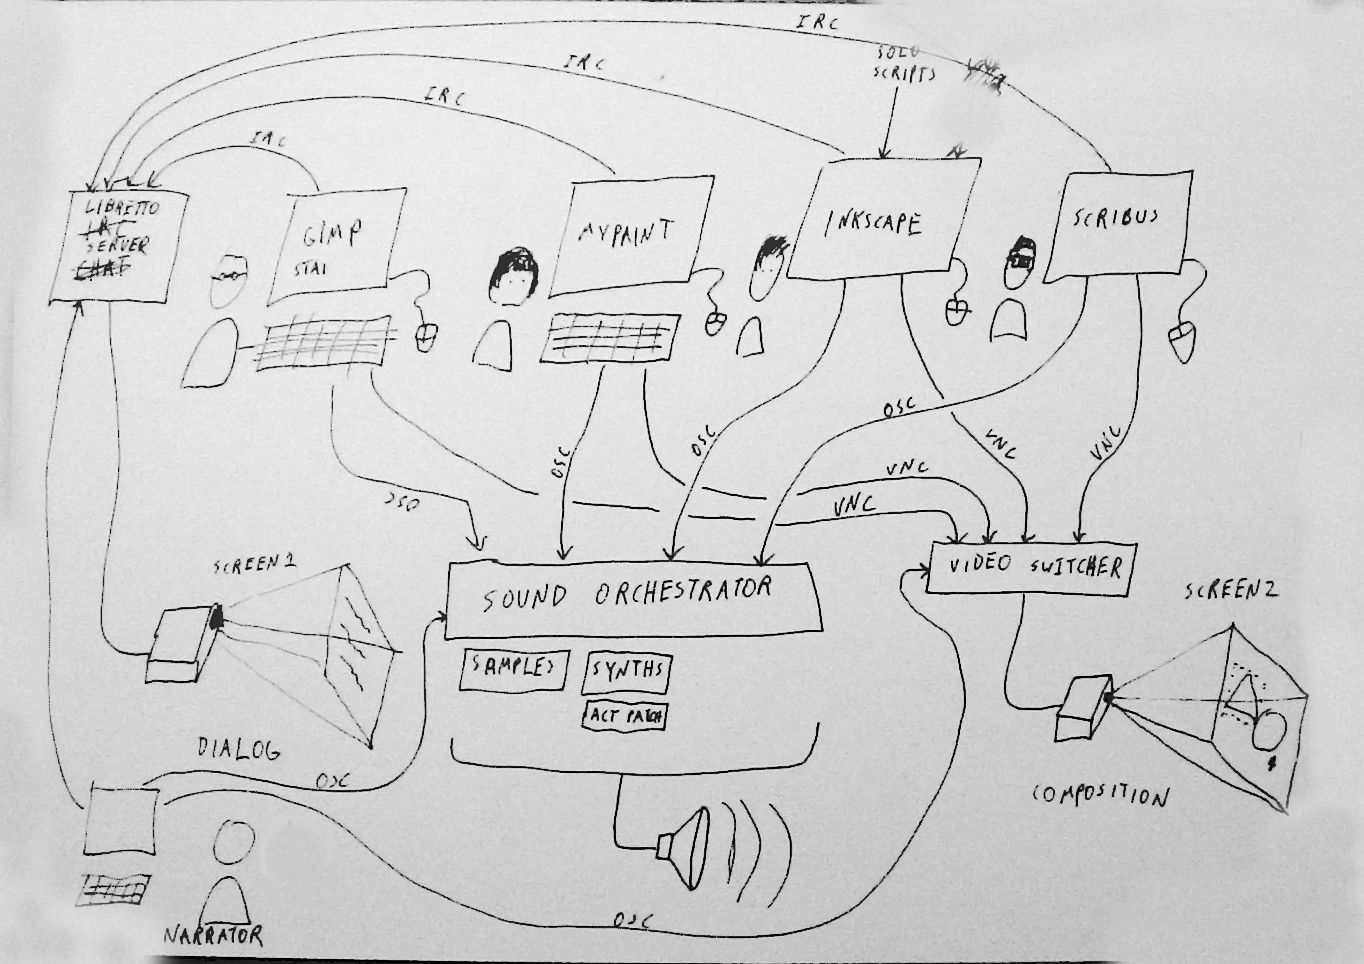 IRC
IRC
IRC
IRC
SOLO
SCRIPTS
LIBRETTO
IRC
SERVER
CHAT
GIMP
STAI
MYPAINT
INKSCAPE
SCRIBUS
OSC
OSC
OSC
OSC
VNC
VNC
VNC
VNC
SCREEN1
SOUND ORCHESTRATOR
VIDEO SWITCHER
SCREEN2
SAMPLES
SYNTHS
ACT PATCH
DIALOG
OSC
COMPOSITION
OSC
NARRATOR